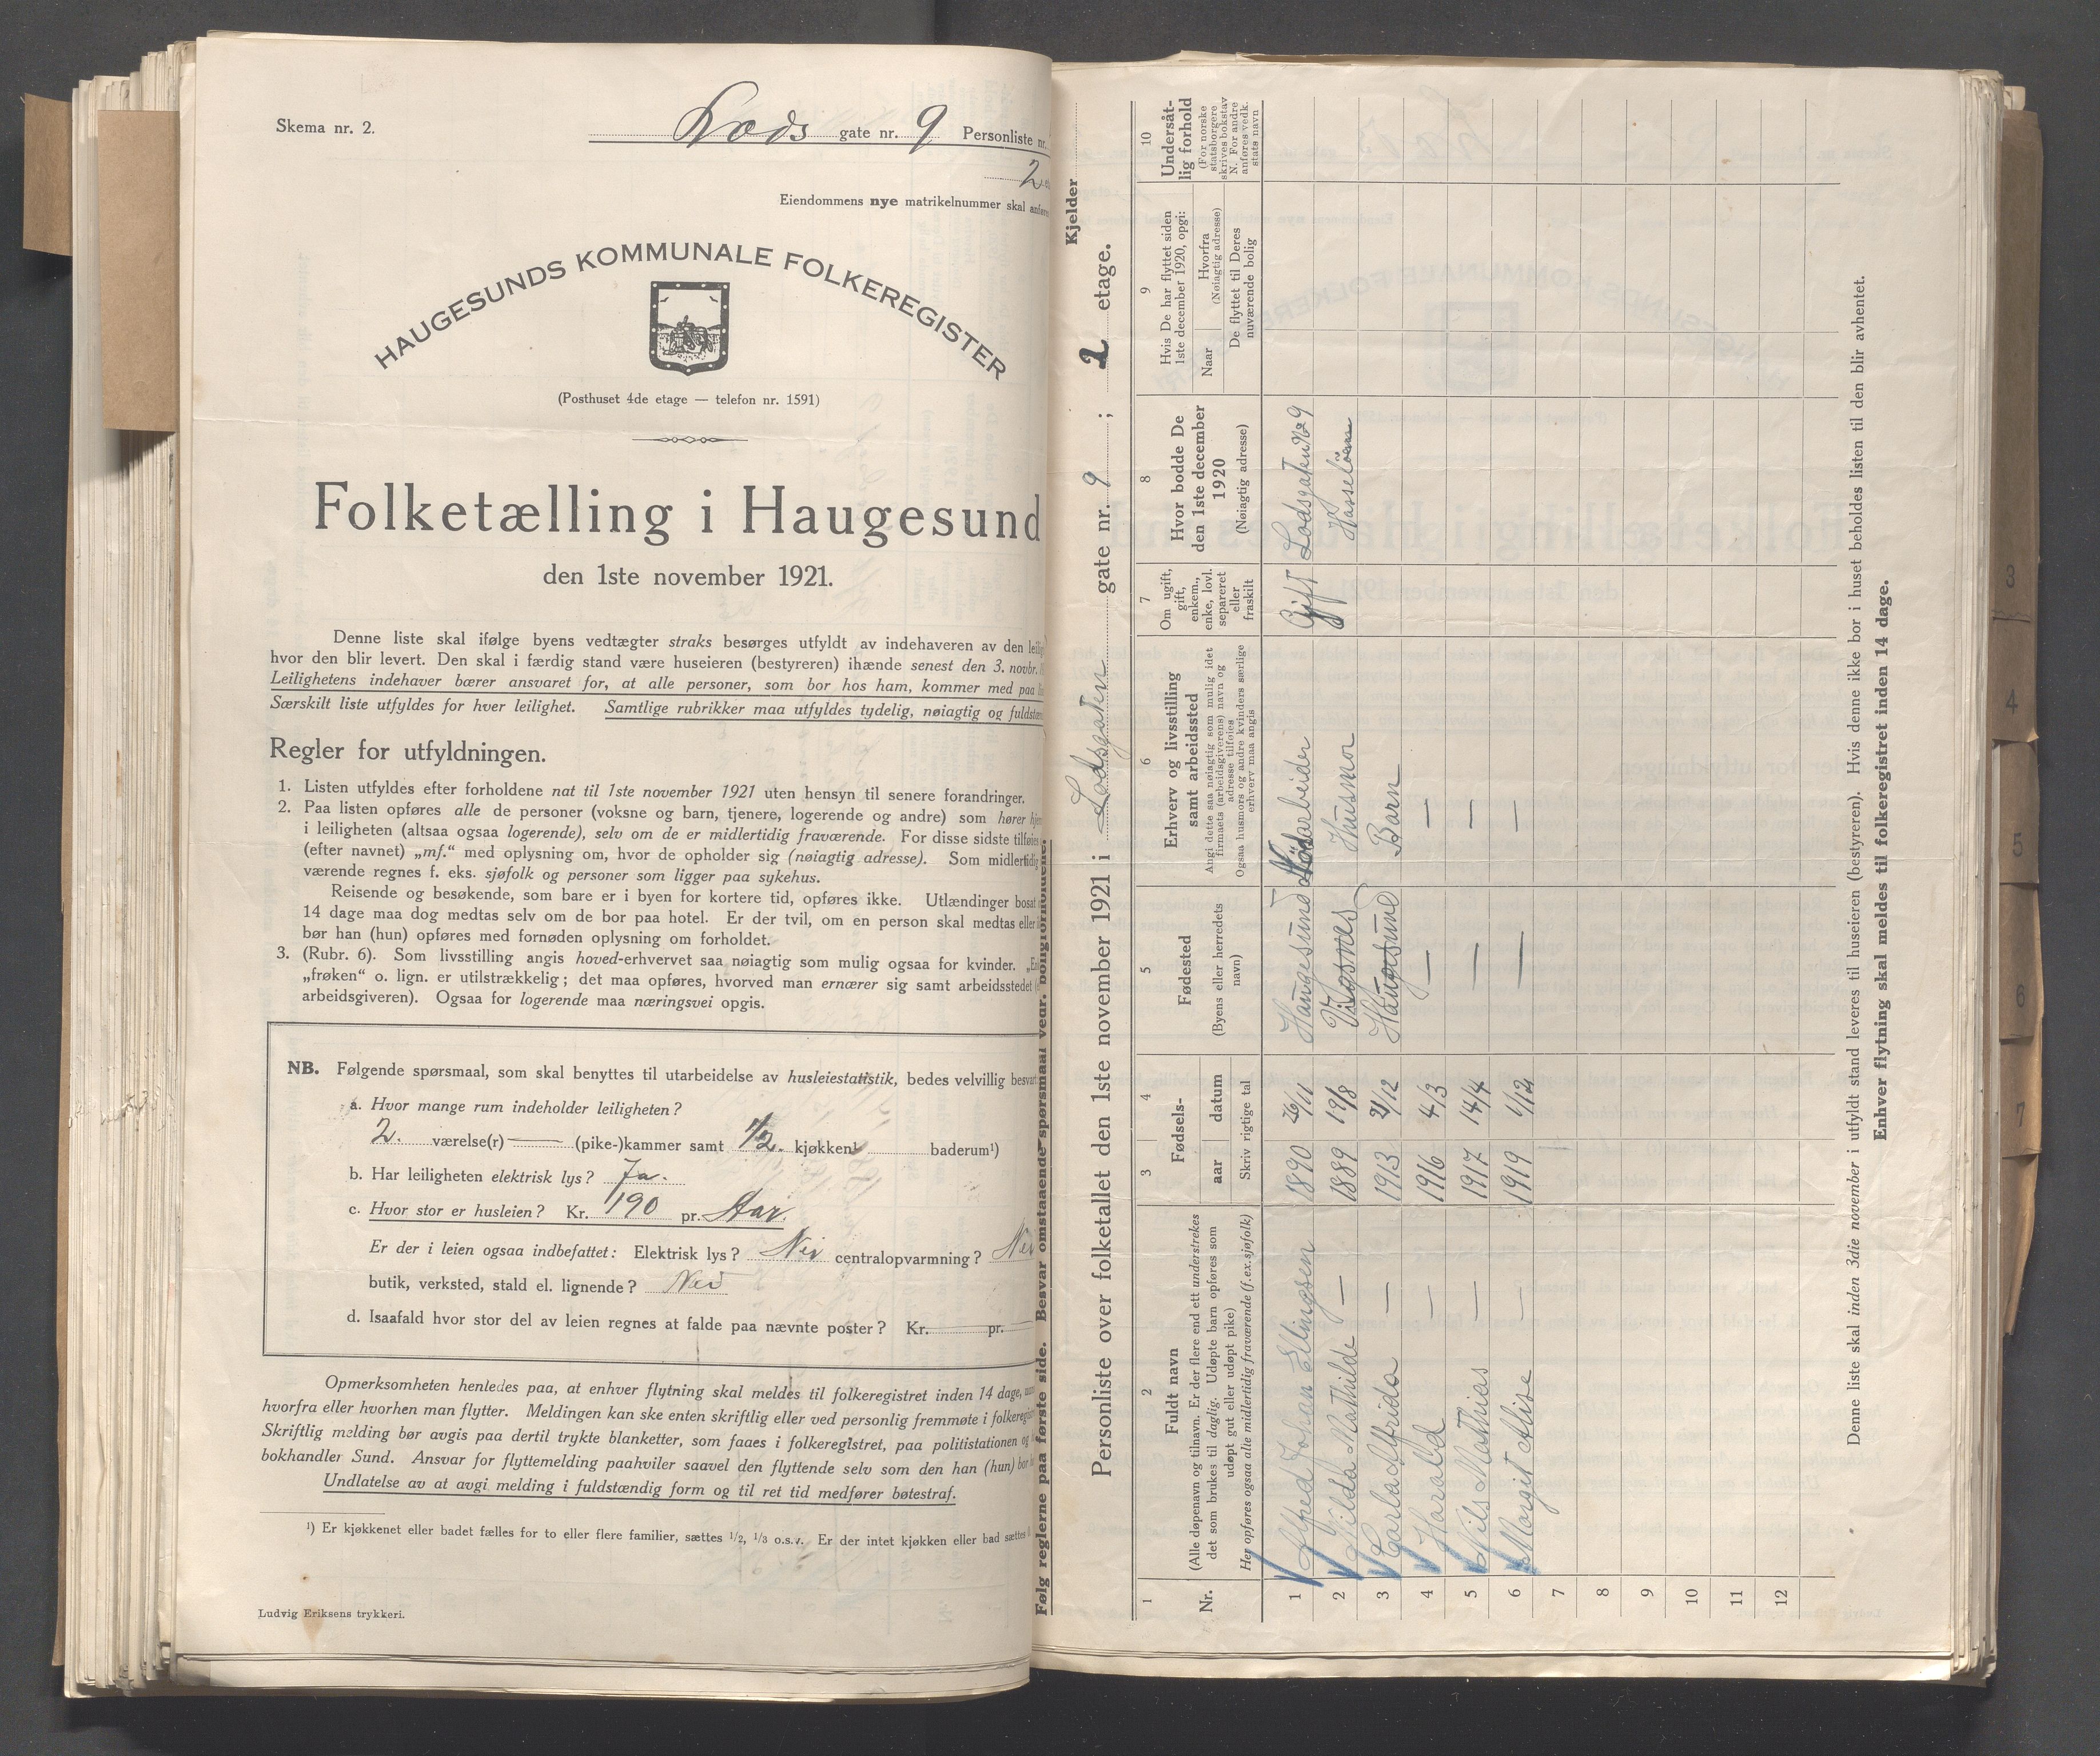 Skema nr. 2.
Lods gate nr. 9 Personliste nr.
2
Eiendommens nye matrikelnummer skal anføres
HAUGESUNDS KOMMUNALE FOLKEREGISTER
(Posthuset 4de etage — telefon nr. 1591)
Folketælling i Haugesund
den 1ste november 1921.
Denne liste skal ifølge byens vedtægter straks besørges utfyldt av indehaveren av den
hvor den blir levert. Den skal i færdig stand være huseieren (bestyreren) ihænde senest den 3. novbr.
Leilighetens indehaver bærer ansvaret for, at alle personer, som bor hos ham, kommer med paa
Særskilt liste utfyldes for hver leilighet. Samtlige rubrikker maa utfyldes tydelig, nøiagtig og
Regler for utfyldningen.
1. Listen utfyldes efter forholdene nat til 1ste november 1921 uten hensyn til senere forandringer.
2. Paa listen opføres alle de personer (voksne og barn, tjenere, logerende og andre) som hører
i leiligheten (altsaa ogsaa logerende), selv om de er midlertidig fraværende. For disse sidste tilføies
(efter navnet) „mf.“ med oplysning om, hvor de opholder sig (nøiagtig adresse). Som midlertidig
værende regnes f. eks. sjøfolk og personer som ligger paa sykehus.
Reisende og besøkende, som bare er i byen for kortere tid, opføres ikke. Utlændinger bosat
14 dage maa dog medtas selv om de bor paa hotel. Er der tvil, om en person skal medtas eller
bør han (hun) opføres med fornøden oplysning om forholdet.
3. (Rubr. 6). Som livsstilling angis hoved-erhvervet saa nøiagtig som mulig ogsaa for kvinder.
„frøken“ o. lign. er utilstrækkelig; det maa opføres, hvorved man ernærer sig samt arbeidsstedet
arbeidsgiveren). Ogsaa for logerende maa næringsvei opgis.
NB. Følgende spørsmaal, som skal benyttes til utarbeidelse av husleiestatistik, bedes velvillig besvart
a. Hvor mange rum indeholder leiligheten?
2. værelse(r) — (pike-)kammer samt 1/2. kjøkken baderum¹)
b. Har leiligheten elektrisk lys? Ja.
c. Hvor stor er husleien? Kr. 190 pr. Aar.
Er der i leien ogsaa indbefattet: Elektrisk lys? Nei centralopvarmning? Nei
butik, verksted, stald el. lignende? Nei
d. Isaafald hvor stor del av leien regnes at falde paa nævnte poster? Kr. — pr. —
Opmerksomheten henledes paa, at enhver flytning skal meldes til folkeregistret inden 14 dage,
hvorfra eller hvorhen man flytter. Meldingen kan ske enten skriftlig eller ved personlig fremmøte i
Skriftlig melding bør avgis paa dertil trykte blanketter, som faaes i folkeregistret, paa politistationen og
bokhandler Sund. Ansvar for flyttemelding paahviler saavel den flyttende selv som den han (hun) bor
Undlatelse av at avgi melding i fuldstændig form og til ret tid medfører bøtestraf.
¹) Er kjøkkenet eller badet fælles for to eller flere familier, sættes 1/2, 1/3 o.s.v. Er der intet kjøkken eller bad sættes
Ludvig Eriksens trykkeri.
Følg reglerne paa første side. Besvar omstaaende spørsmaal vedr. boligforholdene.
Kjelder
Personliste over folketallet den 1ste november 1921 i Lodsgaten gate nr. 9 ; 2 etage.
1 2 3 4 5 6 7 8 9 10
Nr.
Fuldt navn
(Alle døpenavn og tilnavn. Er der flere end ett understrekes
det som brukes til daglig. Udøpte barn opføres som
udøpt gut eller udøpt pike)
Her opføres ogsaa alle midlertidig fraværende (f.ex.sjøfolk)
Fødsels-
aar datum
Skriv rigtige tal
Fødested
(Byens eller herredets
navn)
Erhverv og livsstilling
samt arbeidssted
Angi dette saa nøiagtig som mulig idet
firmaets (arbeidsgiverens) navn og
adresse tilføies
Ogsaa husmors og andre kvinders særlige
erhverv maa angis
Om ugift,
gift,
enkem.,
enke, lovl.
separeret
eller
fraskilt
Hvor bodde De
den 1ste december
1920
(Nøiagtig adresse)
Hvis De har flyttet siden
1ste december 1920, opgi:
Naar
Hvorfra
(Nøiagtig adresse)
De flyttet til Deres
nuværende bolig
Undersåt-
lig forhold
(For norske
statsborgere
skrives bokstav
N. For andre
anføres vedk.
stats navn
1 Alfred Johan Ellingsen 1890 26/11 Haugesund Gift Lodsgaten № 9
2 Hilda Mathilde — 1889 19/8 Vigsnes Husmor gift Hasseløen
3 Carla Alfrida — 1913 21/12 Haugesund Barn
4 Harald — 1916 4/3 — —
5 Nils Mathias — 1917 14/4 — —
6 Margit Alise — 1919 1/12 — —
7
8
9
10
11
12
Denne liste skal inden 3die november i utfyldt stand leveres til huseieren (bestyreren). Hvis denne ikke bor i huset beholdes listen til den blir avhentet.
Enhver flytning skal meldes til folkeregistret inden 14 dage.
3
4
5
6
7